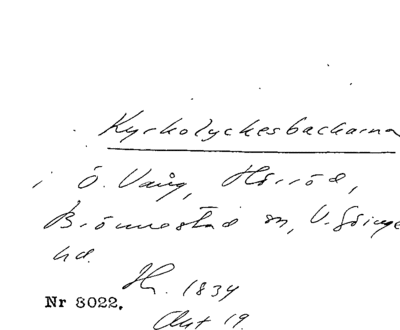 Kyrkolyckesbackarna
i Ö. Vång, Hörröd,
Brönnestad sn, V. Göinge
hd.
Hr. 1834
Nr 3022.
Akt 19.